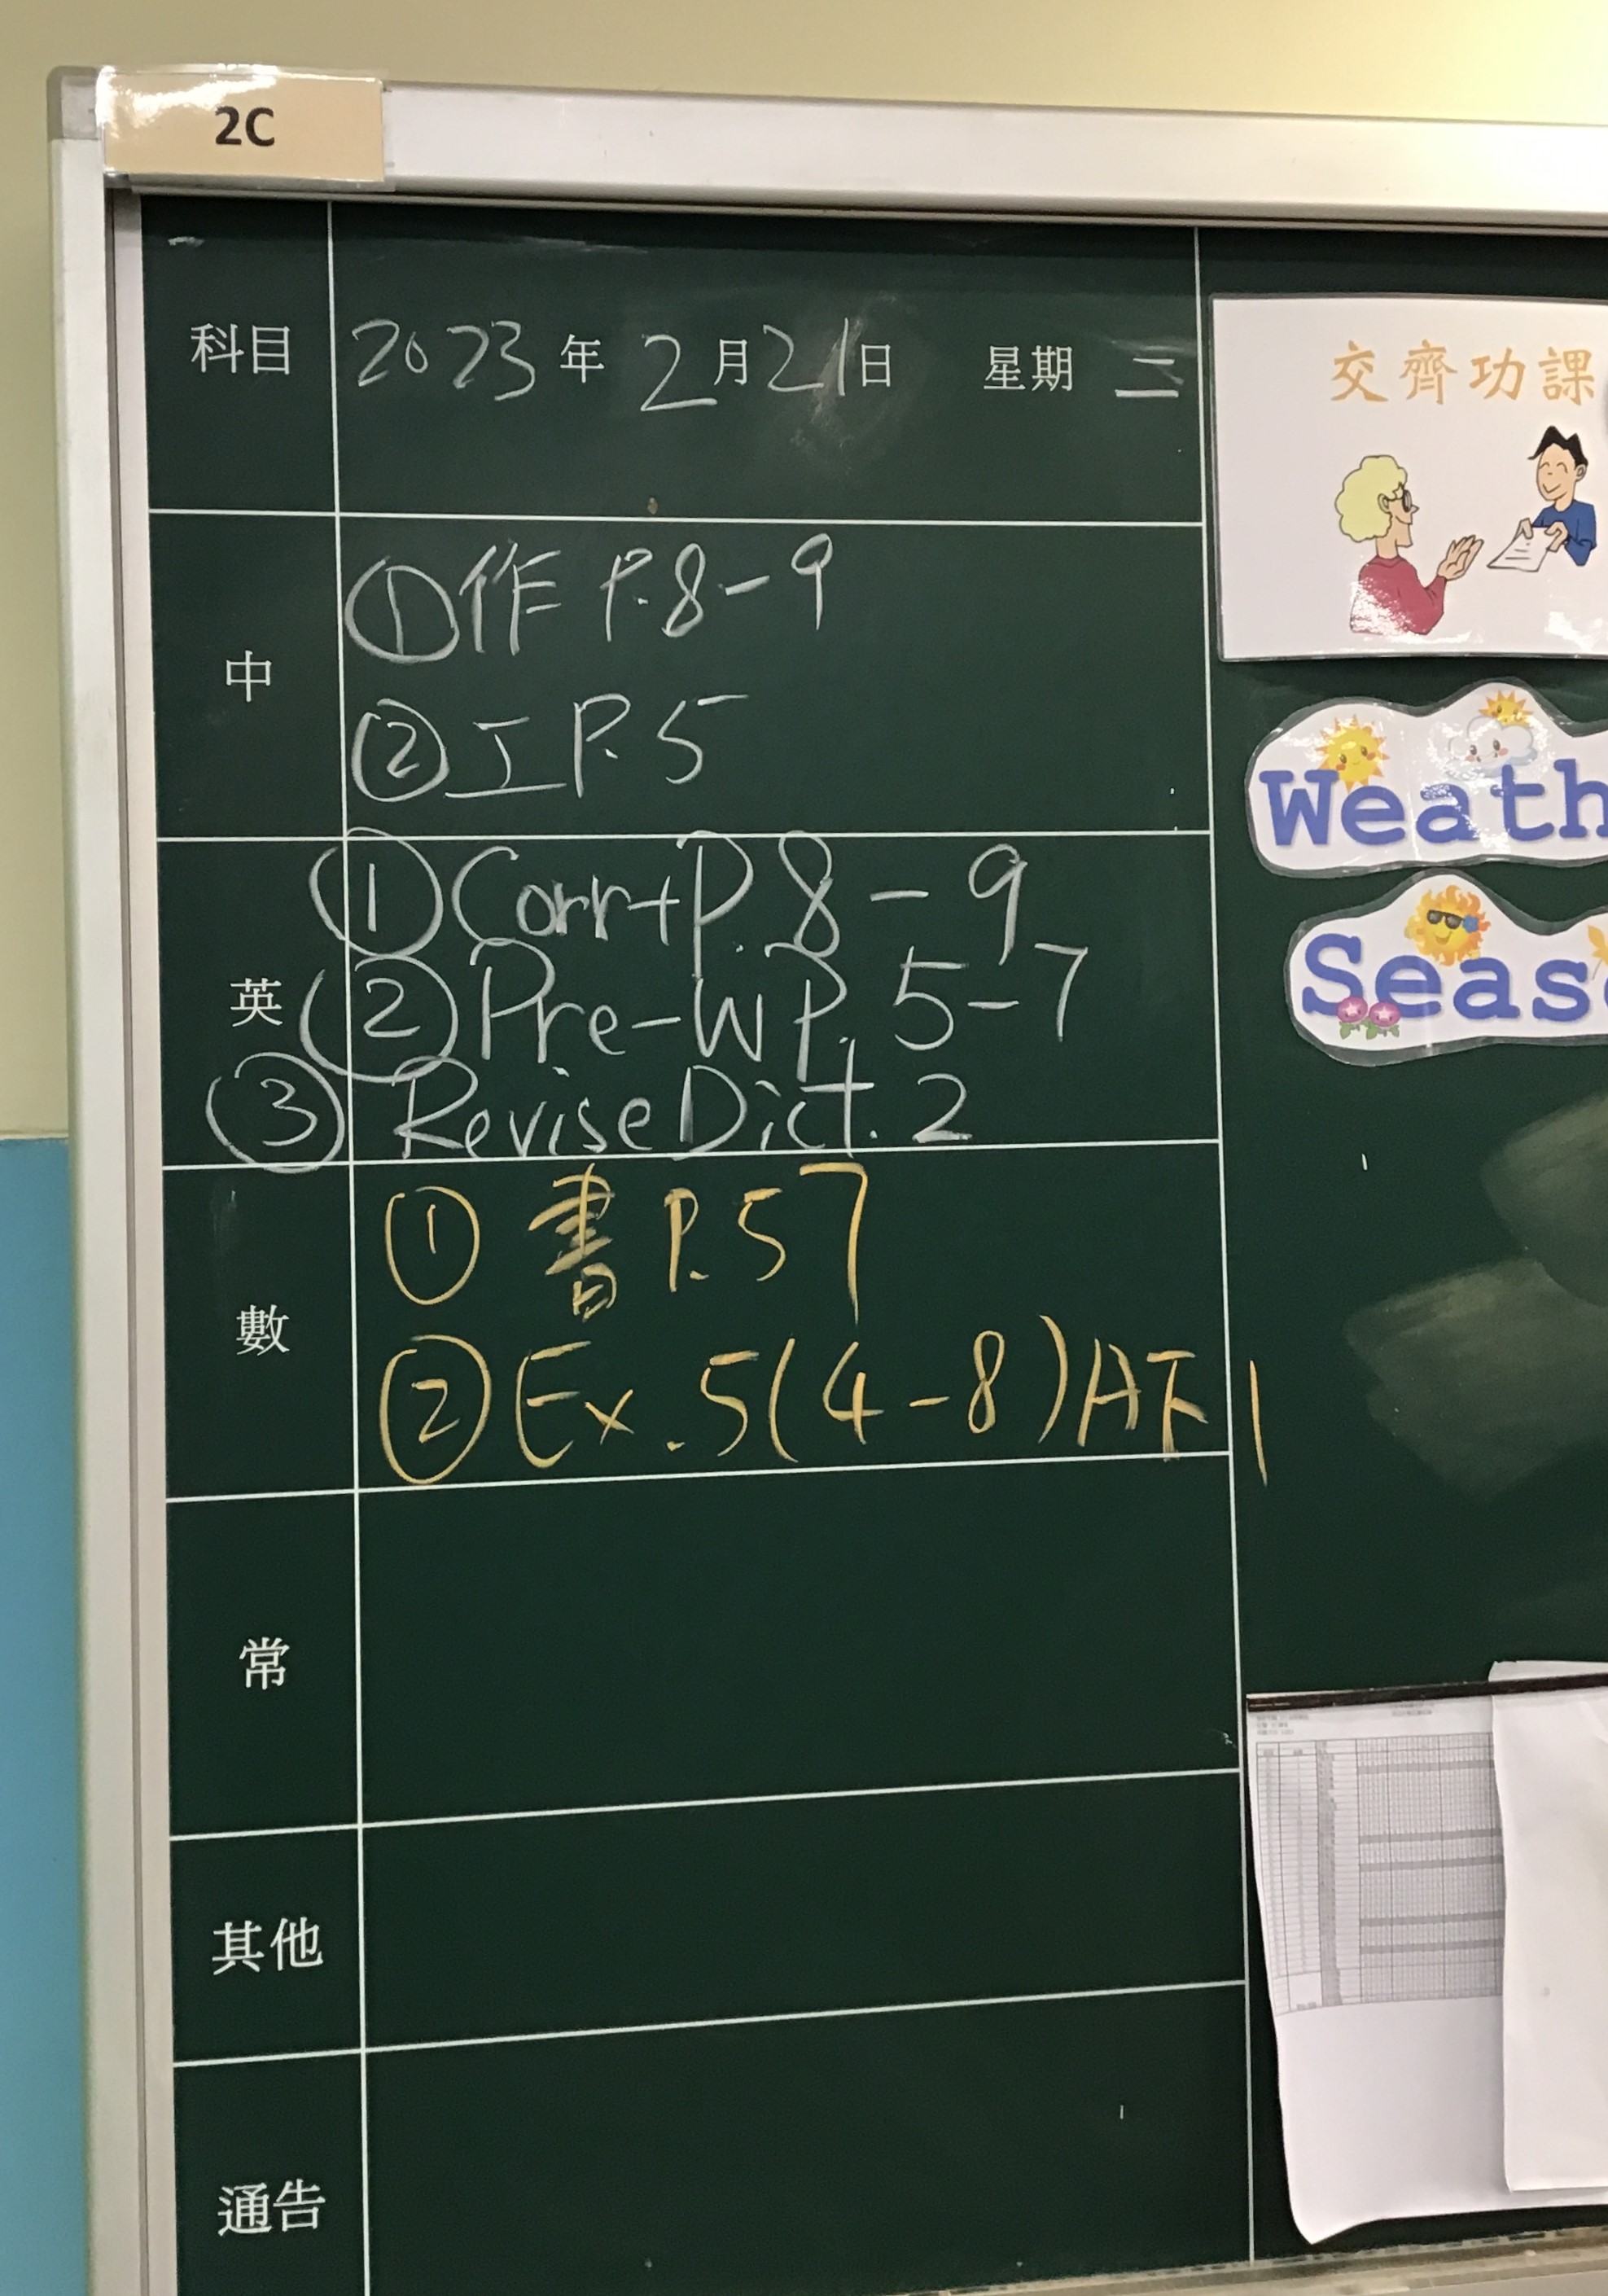 2C
科目 2023年2月21日 星期二
中
①作 P.8-9
②工 P.5
英
①Corr+P.8-9
②Pre-WP.5-7
③ReviseDict.2
數
①書 P.57
②Ex.5(4-8)A下1
常
其他
通告
交齊功課
Weath
Seas